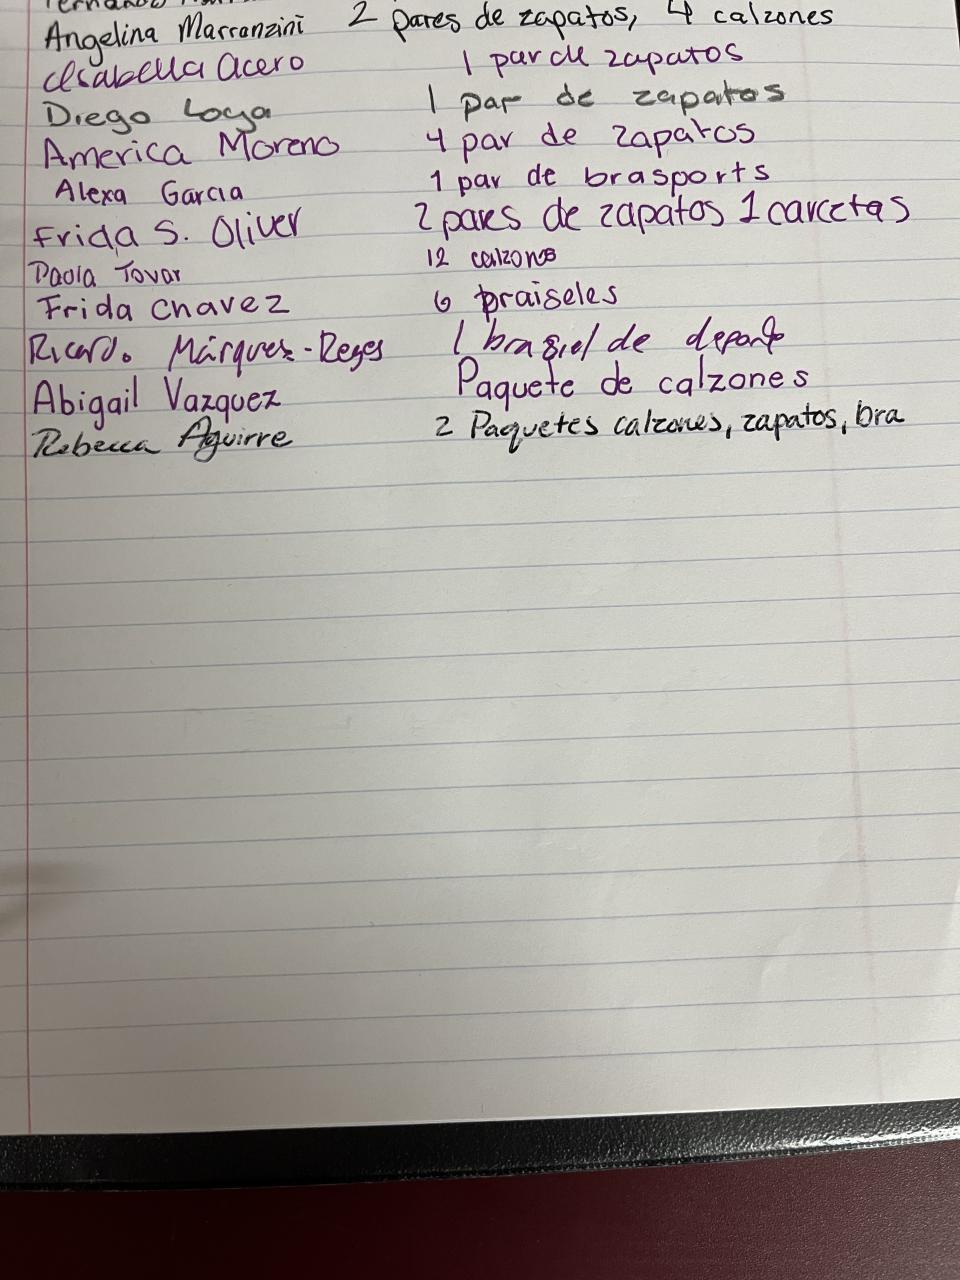 Angelina Marranzini 2 pares de zapatos, 4 calzones
Isabella Acero 1 par de zapatos
Diego Loya 1 par de zapatos
America Moreno 4 par de zapatos
Alexa Garcia 1 par de brasports
Frida S. Oliver 2 pares de zapatos 1 carcetas
Paola Tovar 12 calzones
Frida Chavez 6 braiseles
Ricardo Márquez-Reyes 1 brasiel de deporte
Abigail Vazquez Paquete de calzones
Rebecca Aguirre 2 Paquetes calzones, zapatos, bra